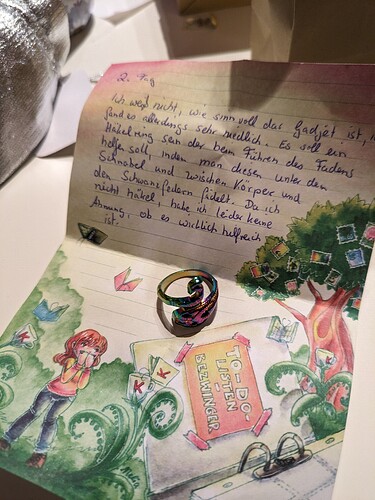 2. Tag
Ich weiß nicht, wie sinnvoll das Gadjet ist, i
fand es allerdings sehr niedlich. Es soll ein
Häkelring sein der beim Führen des Fadens
helfen soll, indem man diesen unter den
Schnabel und zwischen Körper und
den Schwanzfedern fädelt. Da ich
nicht häkel, habe ich leider keine
Ahnung, ob es wirklich hilfreich
ist.
K
K
K
TO-DO-
LISTEN-
BEZWINGER